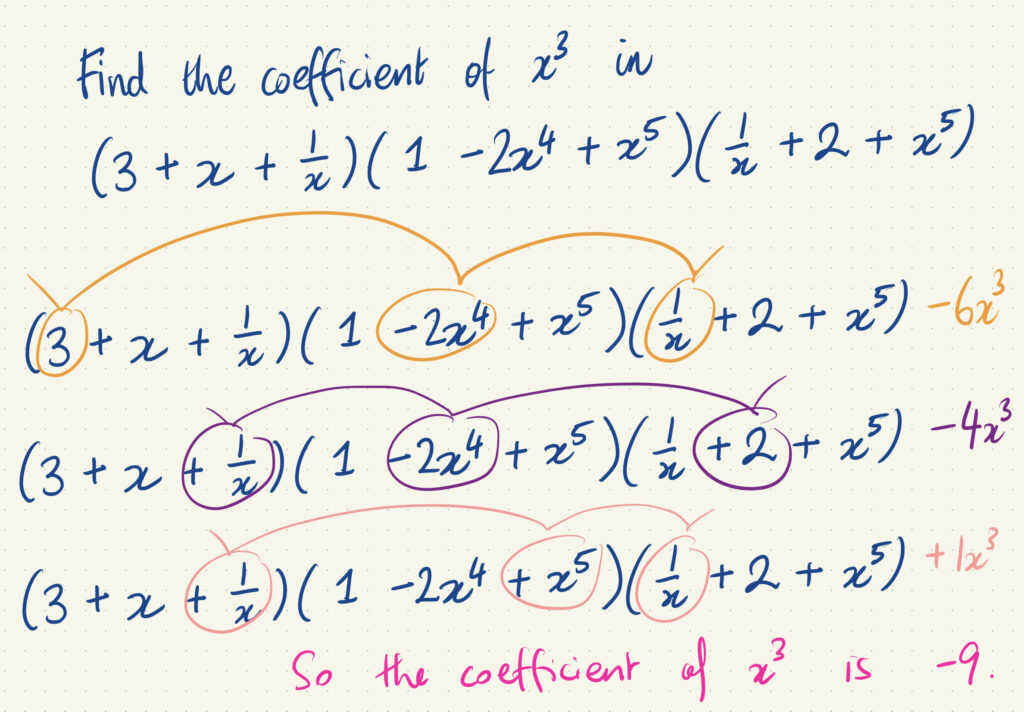 Find the coefficient of x³ in
(3 + x + 1/x)(1 - 2x⁴ + x⁵)(1/x + 2 + x⁵)
(3 + x + 1/x)(1 - 2x⁴ + x⁵)(1/x + 2 + x⁵) -6x³
(3 + x + 1/x)(1 - 2x⁴ + x⁵)(1/x + 2 + x⁵) -4x³
(3 + x + 1/x)(1 - 2x⁴ + x⁵)(1/x + 2 + x⁵) +1x³
So the coefficient of x³ is -9.